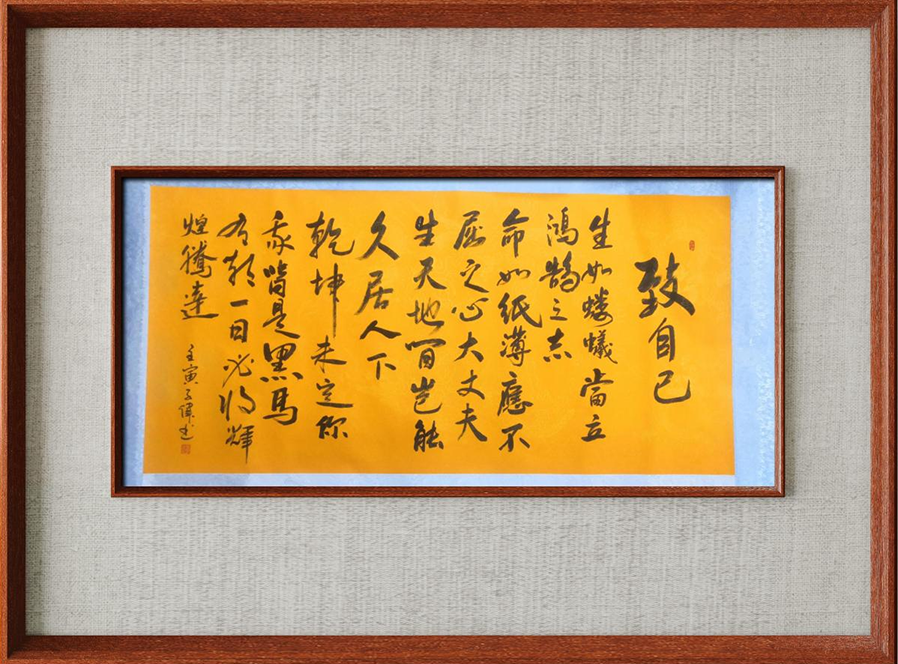 致自己
生如蝼蟻當立
鴻鵠之志
命如紙薄應不
屈之心大丈夫
生天地間豈能
久居人下
乾坤未定你
我皆是黑馬
有朝一日必將輝
煌騰達
壬寅子偉书